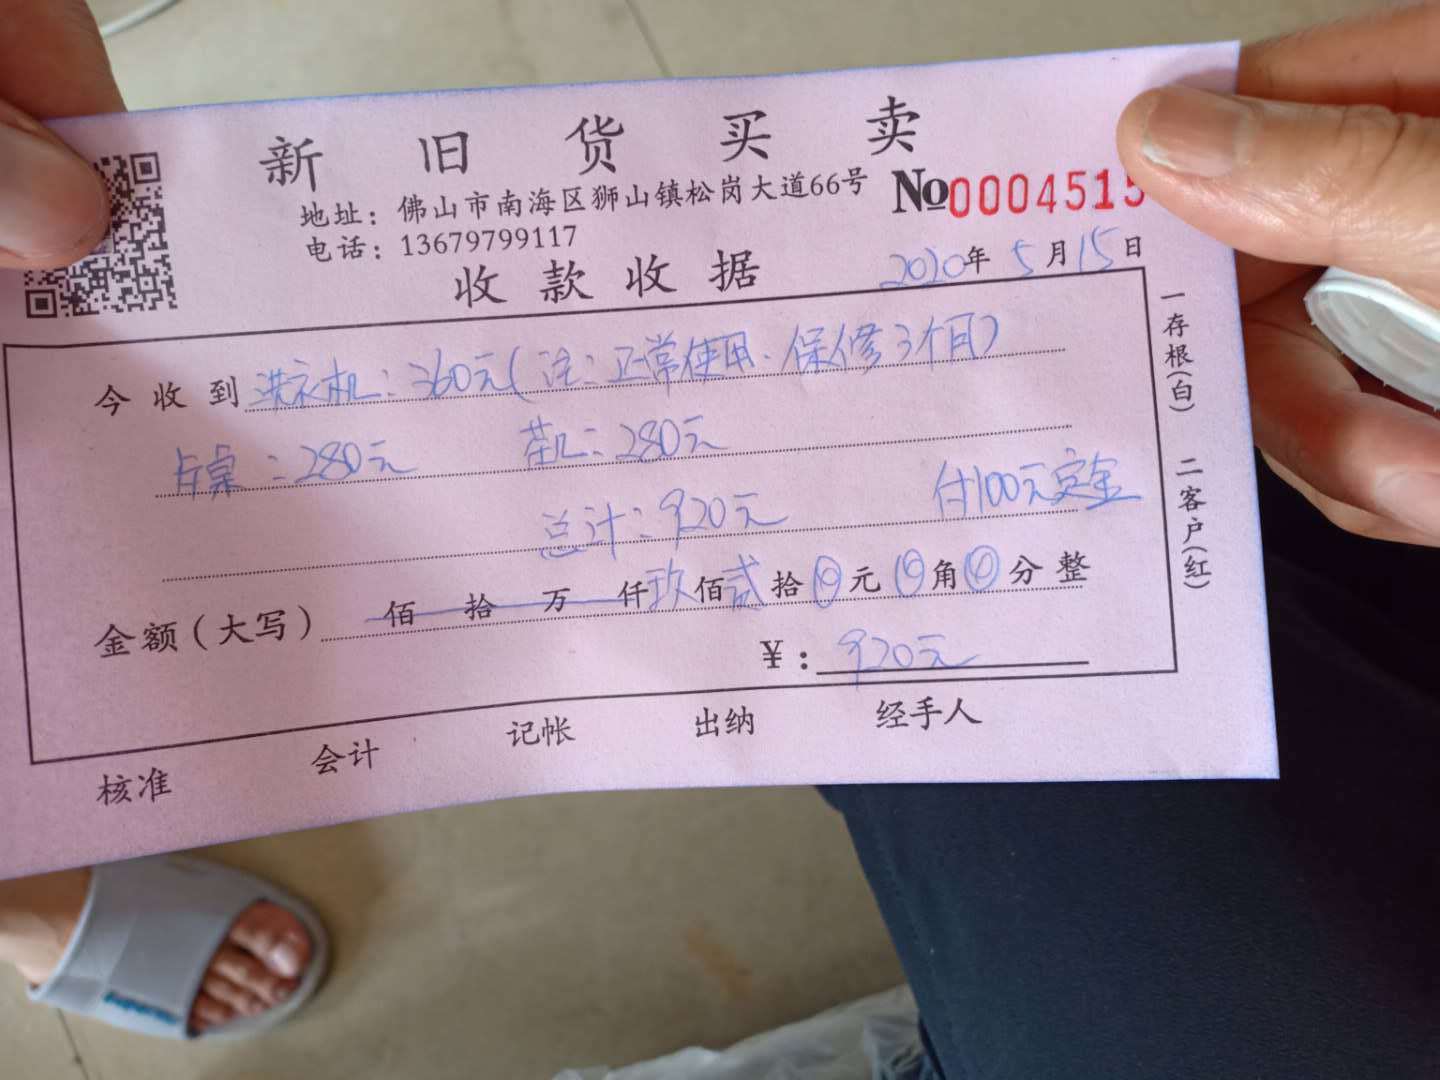 新旧货买卖
地址：佛山市南海区狮山镇松岗大道66号
No0004515
电话：13679799117
收款收据
2020年5月15日
今收到 洗衣机：360元（注：正常使用．保修3个月）
桌：280元 茶几：280元
总计：920元 付100元定金
金额（大写） 佰 拾 万 仟玖佰贰拾0元0角0分整
¥：920元
核准 会计 记帐 出纳 经手人
一存根（白） 二客户（红）